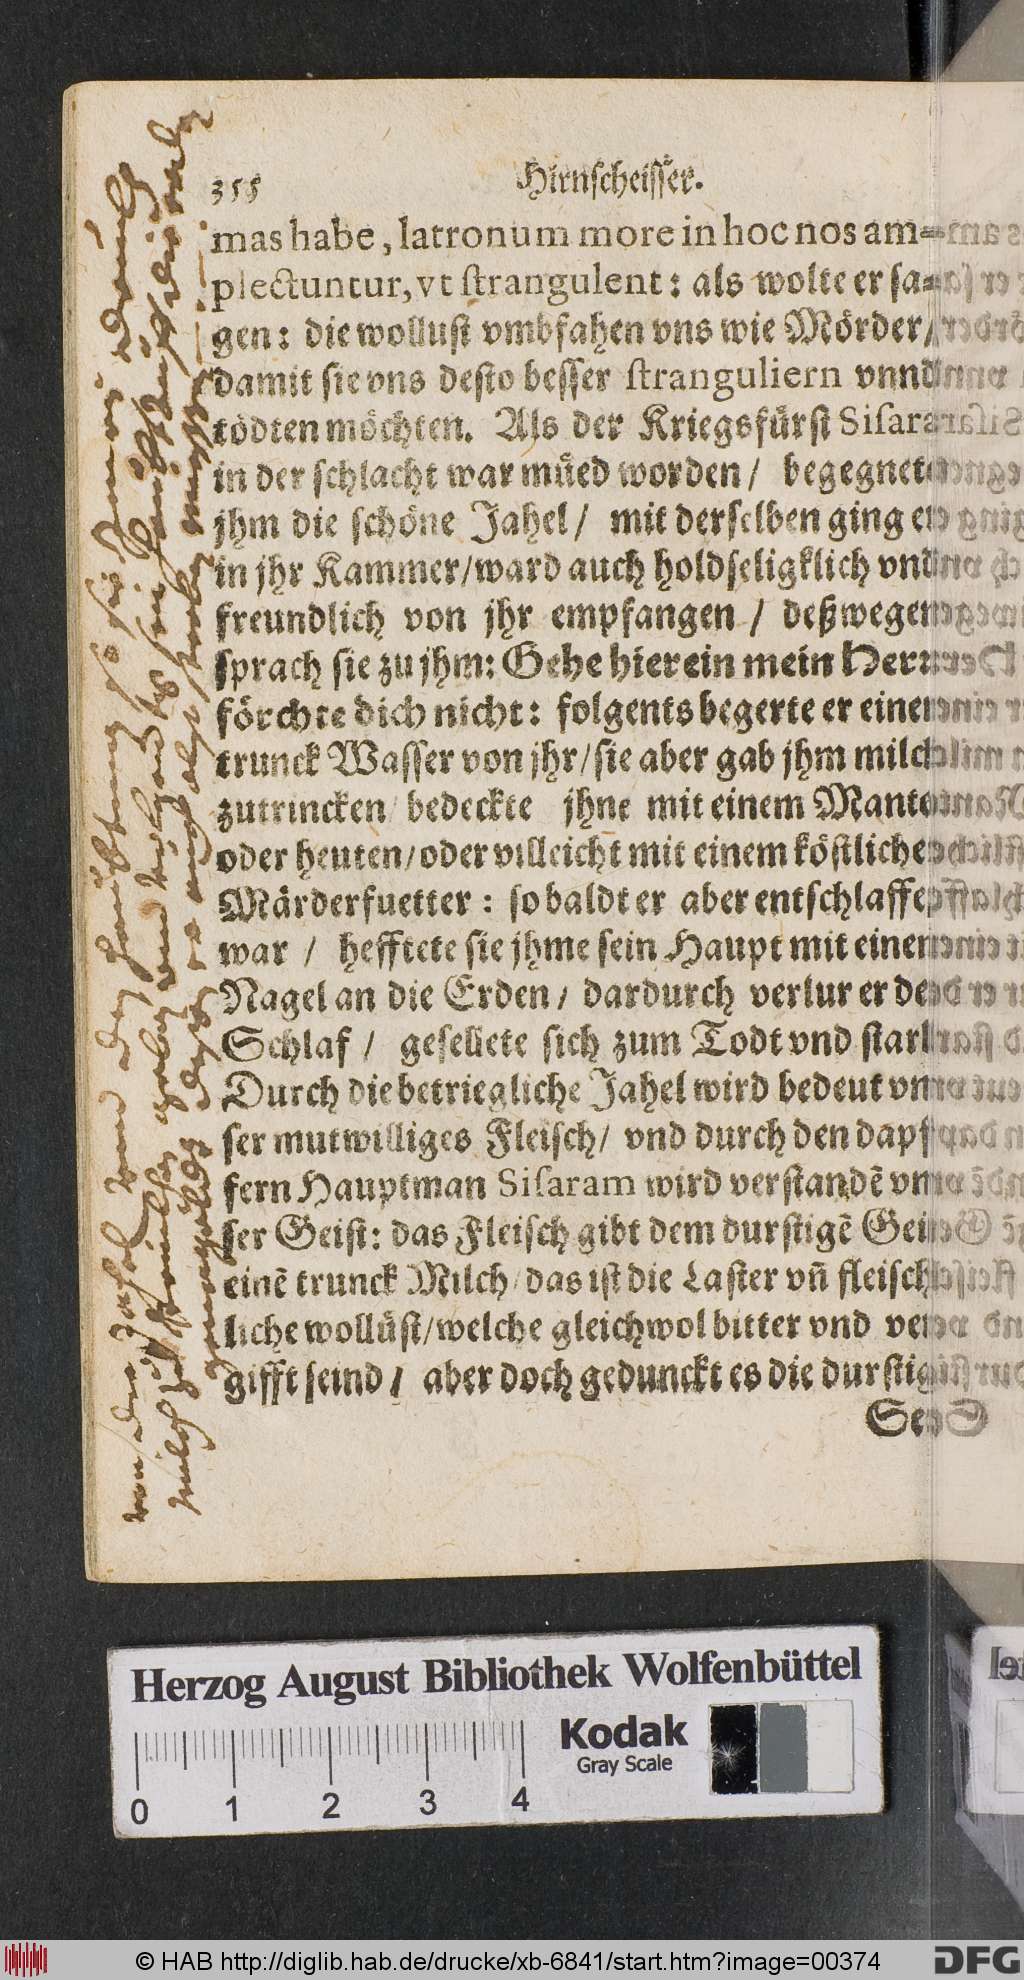 355 Hirnscheisser.
mas habe, latronum more in hoc nos am=
plectuntur, vt strangulent: als wolte er sa=
gen: die wollust vmbfahen vns wie Mörder/
damit sie vns desto besser stranguliern vnnd
tödten möchten. Als der Kriegsfürst Sisara
in der schlacht war müed worden/ begegnet
jhm die schöne Jahel/ mit derselben ging er
in jhr Kammer/ward auch holdseligklich vnd
freundlich von jhr empfangen / deßwegen
sprach sie zu jhm: Gehe hierein mein Herr
förchte dich nicht: folgents begerte er einen
trunck Wasser von jhr/sie aber gab jhm milch
zutrincken/ bedeckte jhne mit einem Mantel
oder heuten/oder villeicht mit einem köstlichen
Märderfuetter: so baldt er aber entschlaffen
war / hefftete sie jhme sein Haupt mit einem
Nagel an die Erden/ dardurch verlur er den
Schlaf/ gesellete sich zum Todt vnd starb
Durch die betriegliche Jahel wird bedeut vn
ser mutwilliges Fleisch/ vnd durch den dapf
fern Hauptman Sisaram wird verstandē vn
ser Geist: das Fleisch gibt dem durstigē Geist
einē trunck Milch/das ist die Laster vñ fleisch
liche wollüst/welche gleichwol bitter vnd ver
gifft seind/ aber doch gedunckt es die durstig
See
Herzog August Bibliothek Wolfenbüttel
Kodak
Gray Scale
0 1 2 3 4
© HAB http://diglib.hab.de/drucke/xb-6841/start.htm?image=00374
DFG